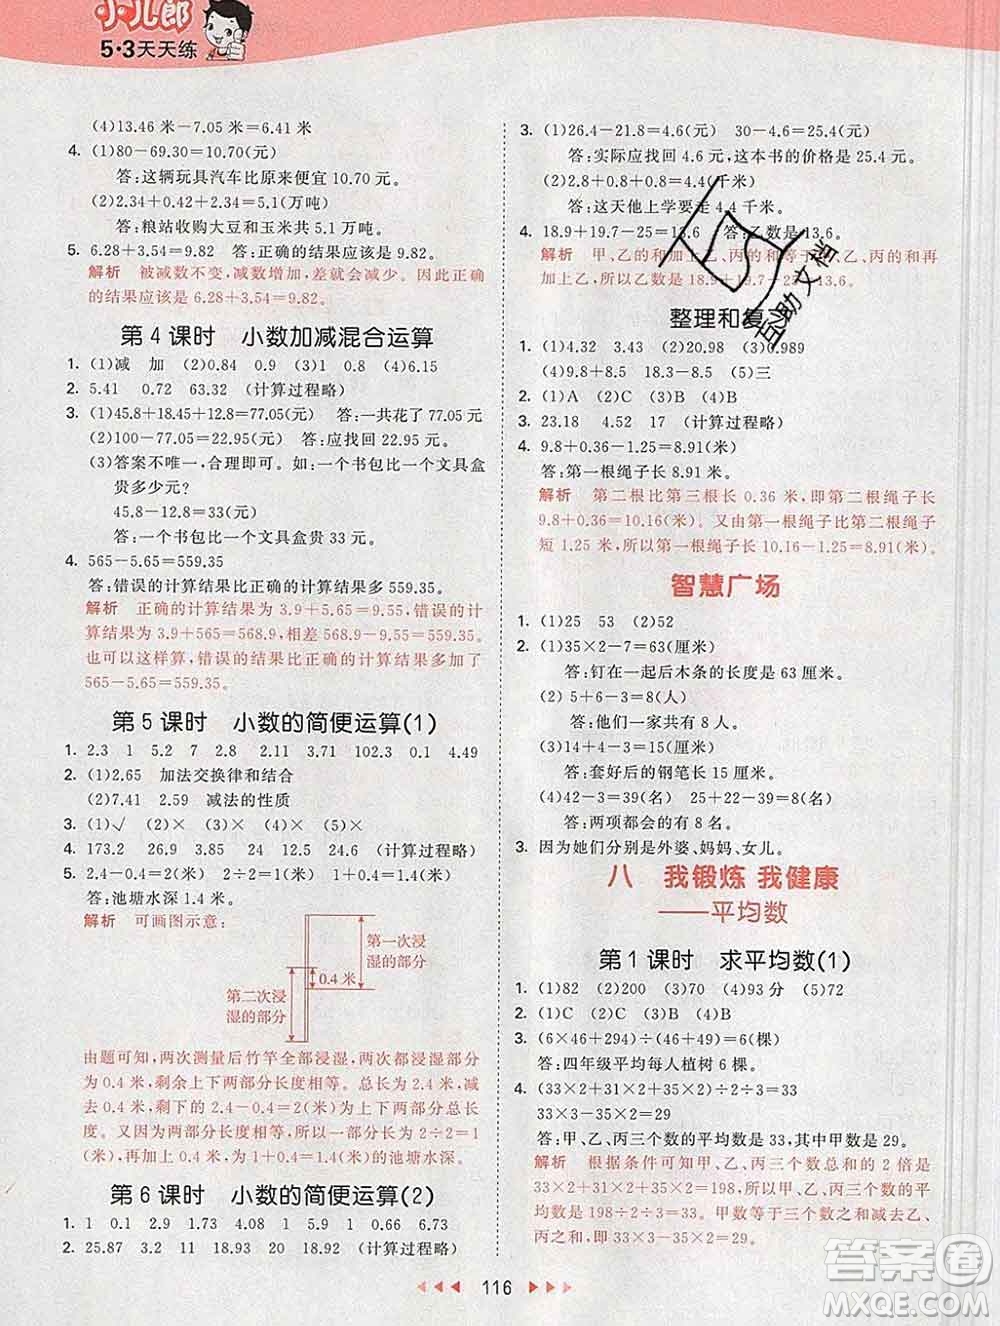 小儿郎
5·3天天练
(4)13.46 米－7.05 米＝6.41 米
4. (1)80－69.30＝10.70(元)
答:这辆玩具汽车比原来便宜 10.70 元。
(2)2.34＋0.42＋2.34＝5.1(万吨)
答:粮站收购大豆和玉米共 5.1 万吨。
5. 6.28＋3.54＝9.82　答:正确的结果应该是 9.82。
解析　被减数不变,减数增加,差就会减少。因此正确
的结果应该是 6.28＋3.54＝9.82。
第 4 课时　小数加减混合运算
1. (1)减　加　(2)0.84　0.9　(3)1　0.8　(4)6.15
2. 5.41　0.72　63.32　(计算过程略)
3. (1)45.8＋18.45＋12.8＝77.05(元)　答:一共花了 77.05 元
(2)100－77.05＝22.95(元)　答:应找回 22.95 元。
(3)答案不唯一,合理即可。如:一个书包比一个文具盒
贵多少元?
45.8－12.8＝33(元)
答:一个书包比一个文具盒贵 33 元。
4. 565－5.65＝559.35
答:错误的计算结果比正确的计算结果多 559.35。
解析　正确的计算结果为 3.9＋5.65＝9.55,错误的计
算结果为 3.9＋565＝568.9,568.9－9.55＝559.35。
也可以这样算,错误的计算结果比正确的计算结果多加了
565－5.65＝559.35。
第 5 课时　小数的简便运算(1)
1. 2.3　1　5.2　7　2.8　2.11　3.71　102.3　0.1　4.49
2. (1)2.65　加法交换律和结合
(2)7.41　2.59　减法的性质
3. (1)√　(2)×　(3)×　(4)×　(5)×
4. 173.2　26　9.29　3.85　24　12.5　24.6　(计算过程略)
5. 2.4－0.4＝2(米)　2÷2＝1(米)　1＋0.4＝1.4(米)
答:池塘水深 1.4 米。
解析　可画图示意:
第一次浸
湿的部分
0.4 米
第二次浸
湿的部分
由题可知,两次测量后竹竿全部浸湿,两次都浸湿的部分
为 0.4 米,剩余上下两部分同样长。总长为 2.4 米,减去
0.4 米,剩下的 2.4－0.4＝2(米)为上下两部分总长
度。又因为两部分同样长,所以一部分长为 2÷2＝1
(米),再加上 0.4 米,就是 1＋0.4＝1.4(米)的池塘水深。
第 6 课时　小数的简便运算(2)
1. 1　0.1　2.9　1.73　4.08　1　5.9　1　0.66　6.73
2. 25.87　3.2　11　18.93　20　18.92　(计算过程略)
3. (1)26.4－21.8＝4.6(元)　30－4.6＝25.4(元)
答:实际应找回 4.6 元,这本书的价格是 25.4 元。
(2)2.8＋0.8＋0.8＝4.4(千米)
答:这天他上学要走 4.4 千米。
4. 18.9＋19.7－25＝13.6　答:乙数是 13.6。
解析　甲、乙的和加上乙、丙的和等于甲、乙、丙的和再
加上乙,所以乙数是 18.9＋19.7－25＝13.6。
整理和复习
1. (1)4.32　3.43　(2)20.98　(3)0.989
(4)9.8＋8.5　18.3－8.5　(5)三
2. (1)A　(2)C　(3)B　(4)B
3. 23.18　4.52　17　(计算过程略)
4. 9.8＋0.36－1.25＝8.91(米)
答:第一根绳子长 8.91 米。
解析　第二根比第三根长 0.36 米,即第二根绳子长
9.8＋0.36＝10.16(米)。又由第一根绳子比第二根绳子
短 1.25 米,所以第一根长 10.16－1.25＝8.91(米)。
智慧广场
1. (1)25　53　(2)52
2. (1)35×2－7＝63(厘米)
答:钉在一起后木条的长度是 63 厘米。
(2) 5＋6－3＝8(人)
答:他们一家共有 8 人。
(3)10＋8－3＝15(厘米)
答:套好后的钢笔长 15 厘米。
(4)42－3＝39(名)　22＋20－3＝39(名)
答:两项都会的有 39 名。
3. 因为她们分别是外婆、妈妈、女儿。
八　我锻炼 我健康
——平均数
第 1 课时　求平均数(1)
1. (1)82　(2)200　(3)70　(4)93 分　(5)72
2. (1)C　(2)B　(3)C　(4)B
3. (6×46＋294)÷(46＋49)＝6(棵)
答:四年级平均每人植树 6 棵。
4. (33×2＋31×2＋35×2)÷2÷3＝33
33×3－35×2＝29
答:甲、乙、丙三个数的平均数是 33,其中甲数是 29。
解析　根据条件可知甲、乙、丙三个数总和的 2 倍是
33×2＋31×2＋35×2＝198,所以甲、乙、丙三个数的
平均数是 198÷2÷3＝33。甲数等于三数总和减去乙、
丙的和,即 33×3－35×2＝29。
116
互助文档
答案圈
MXQE.COM